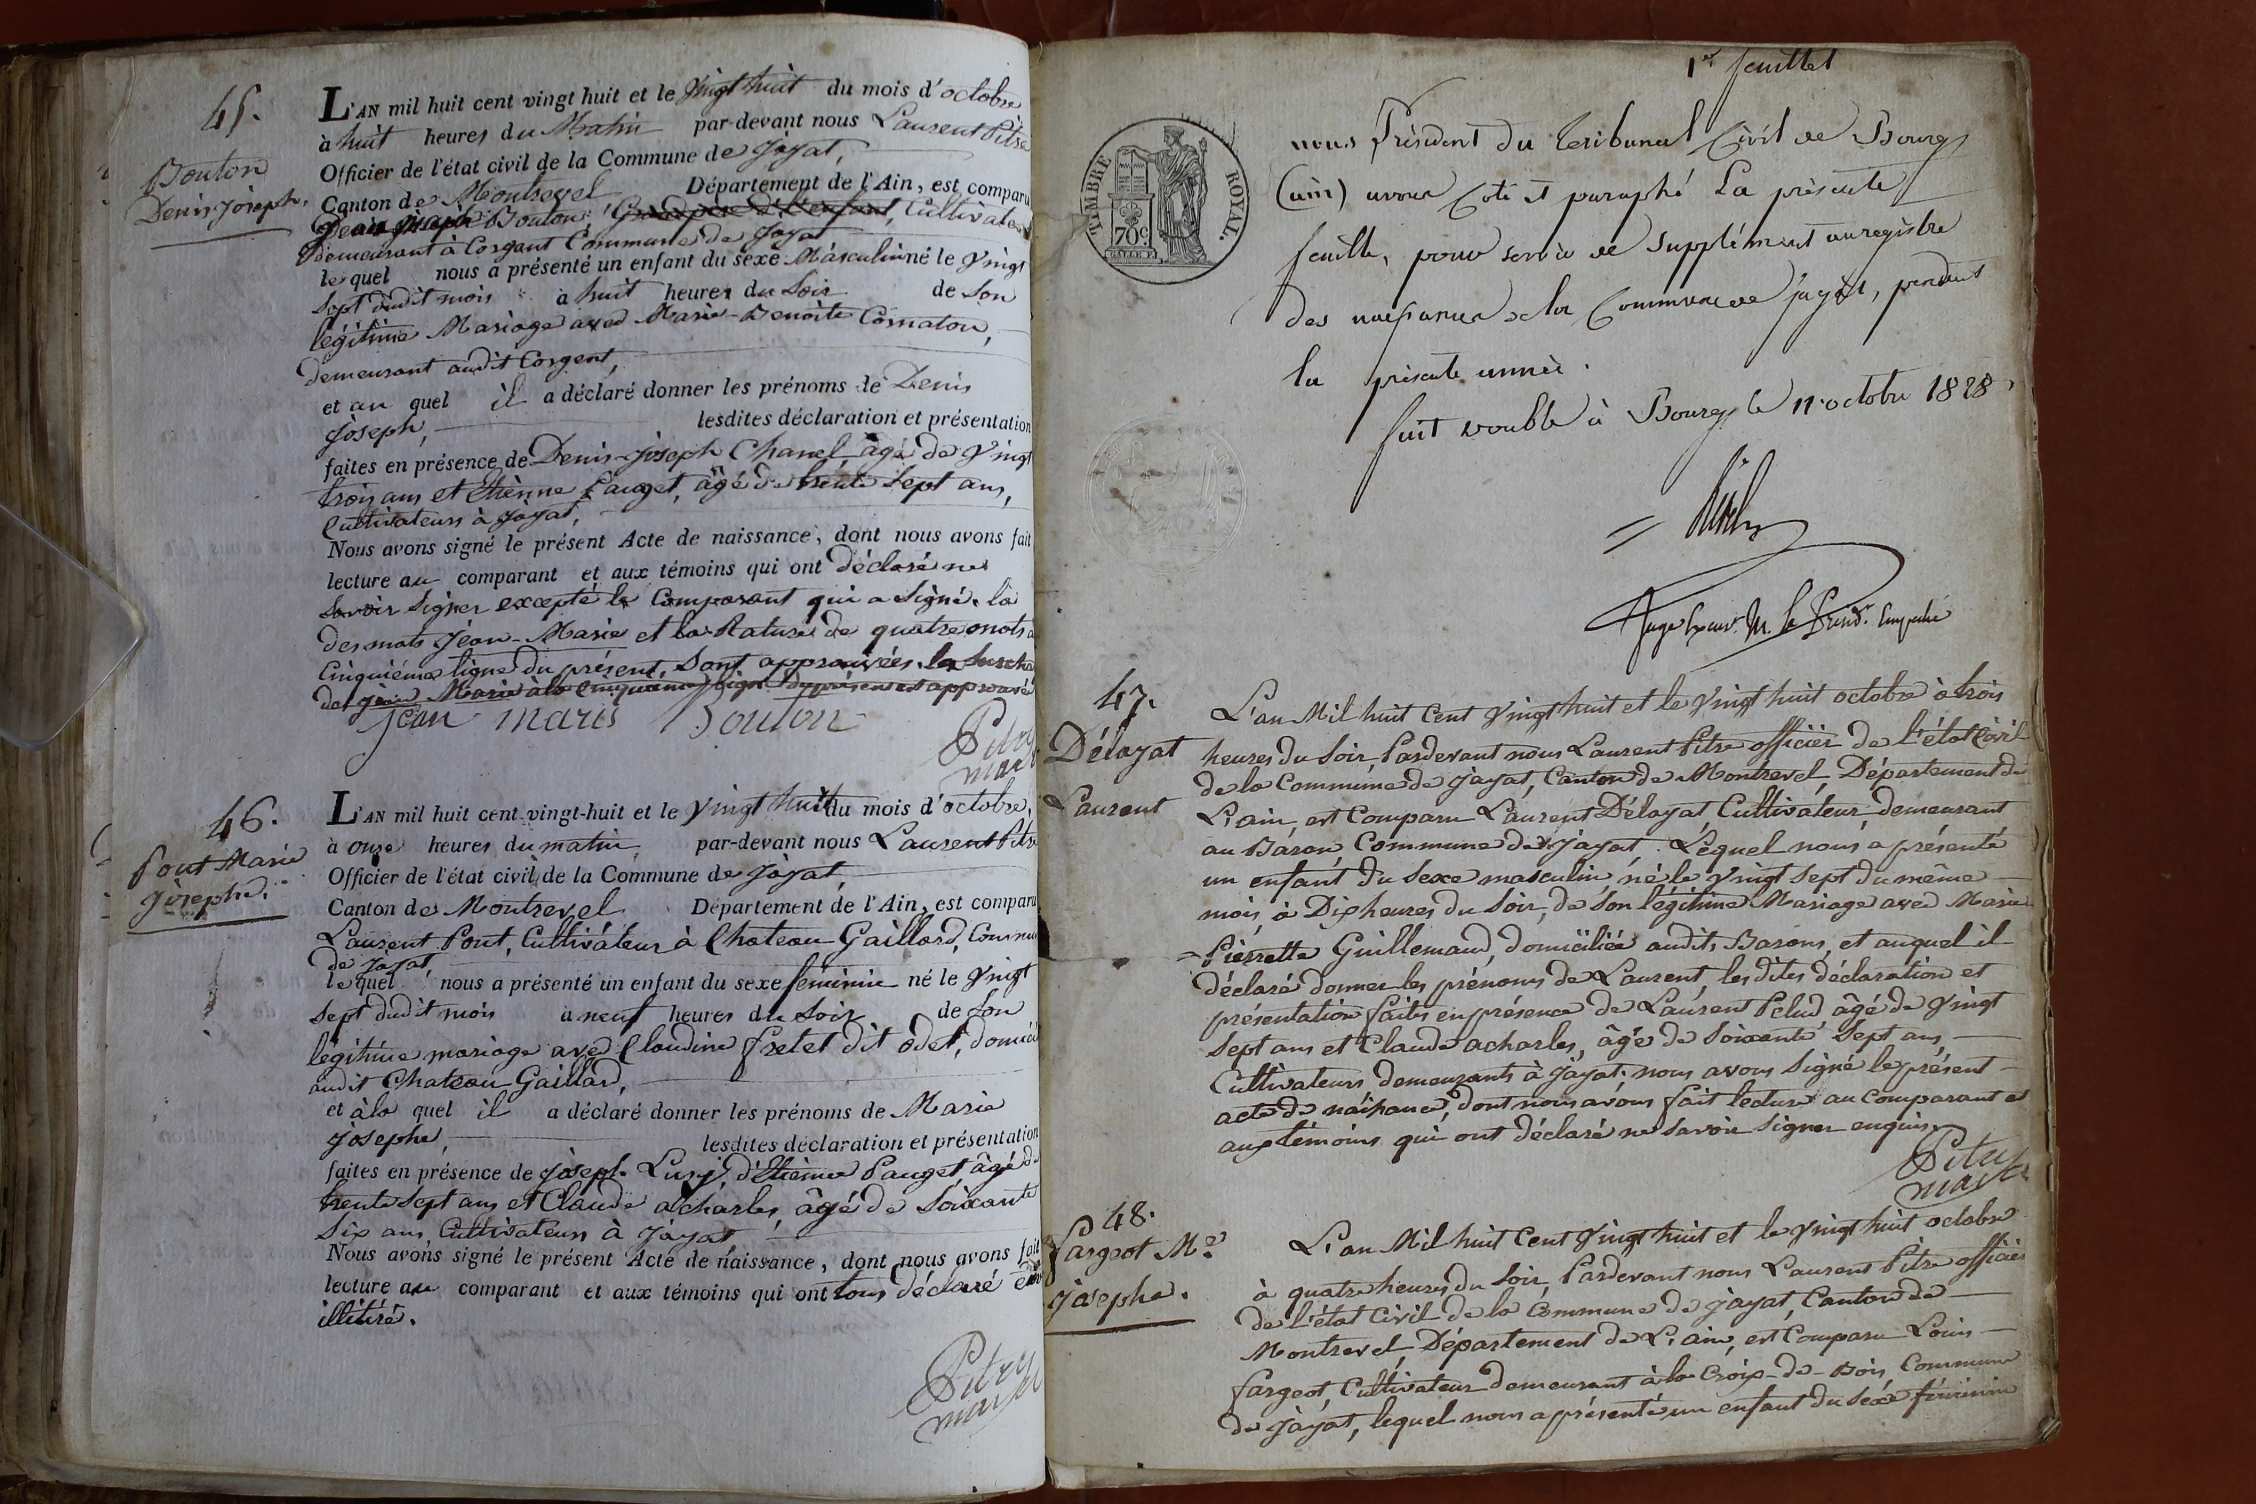 45.
Bouton
Denis Joseph.
L'AN mil huit cent vingt huit et le vingt huit du mois d'octobre
à huit heures du Matin par-devant nous Laurent Pitre
Officier de l'état civil de la Commune de Jayat,
Canton de Montrevel Département de l'Ain, est comparu
Jean Marie Bouton, Grand père de l'enfant, Cultivateur
demeurant à Corgent Commune de Jayat
lequel nous a présenté un enfant du sexe Masculin né le vingt
sept dudit mois à huit heures du Soir de Son
légitime Mariage avec Marie-Benoite Cornaton,
demeurant audit Corgent,
et au quel il a déclaré donner les prénoms de Denis
Joseph, lesdites déclaration et présentation
faites en présence de Denis-Joseph Chanel, âgé de vingt
trois ans et Etienne Pauget, âgé de trente Sept ans,
Cultivateurs à Jayat,
Nous avons signé le présent Acte de naissance, dont nous avons fait
lecture au comparant et aux témoins qui ont déclaré ne
Savoir Signer excepté le Comparant qui a Signé. la
des mots Jean-Marie et la Rature de quatre mots à
Cinquième ligne du présent, Sont approuvées. la Surcha
de Jean Marie à la Cinquième ligne du présent est approuvé
jean marie Bouton
Pitre
maire
46.
Pont Marie
Josephe.
L'AN mil huit cent vingt-huit et le vingt huit du mois d'octobre,
à onze heures du matin par-devant nous Laurent Pitre
Officier de l'état civil de la Commune de Jayat
Canton de Montrevel Département de l'Ain, est comparu
Laurent Pont, Cultivateur à Chateau Gaillard, Commune
de Jayat,
lequel nous a présenté un enfant du sexe féminin né le vingt
Sept dudit mois à neuf heures du Soir de Son
légitime mariage avec Claudine fretet dit odet, domicil
audit Chateau Gaillard,
et à la quel il a déclaré donner les prénoms de Marie
Josephe, lesdites déclaration et présentation
faites en présence de Joseph Etienne Pauget, âgé de
trente Sept ans et Claude acharles, âgé de Soixante
Six ans, Cultivateurs à Jayat
Nous avons signé le présent Acte de naissance, dont nous avons fait
lecture au comparant et aux témoins qui ont tous déclaré être
illitiré.
Pitre
maire
1er feuillet
TIMBRE ROYAL.
70c
nous Président du Tribunal Civil de Bourg
(ain) avons Coté et paraphé La présente
feuille, pour servir de Supplément au registre
des naissances de la Commune de jayat, pendant
la présente année.
fait double à Bourg le 11 octobre 1828
Juge Pour M. le Présid. Empeché
47.
Délayat
Laurent
L'an Mil huit Cent vingt huit et le vingt huit octobre à trois
heures du Soir, Pardevant nous Laurent Pitre officier de l'état Civil
de la Commune de Jayat, Canton de Montrevel, Département de
L'ain, est Comparu Laurent Délayat, Cultivateur demeurant
au Baron Commune de Jayat. Lequel nous a présenté
un enfant du Sexe masculin né le vingt Sept du même
mois, à Dix heures du Soir, de Son légitime Mariage avec Marie
Pierrette Guillemaud, domiciliée audits Barons, et auquel il
déclaré donner les prénoms de Laurent, les dites déclaration et
présentation faites en présence de Laurent Pelud âgé de vingt
Sept ans et Claude acharles, âgé de Soixante Sept ans,
Cultivateurs demeurants à Jayat. nous avons Signé le présent
acte de naissance, dont nous avons fait lecture au Comparant et
aux témoins qui ont déclaré ne Savoir Signer enquis.
Pitre
maire
48.
fargeot Mie
Josephe.
L'an Mil huit Cent vingt huit et le vingt huit octobre
à quatre heures du Soir, Pardevant nous Laurent Pitre officier
de l'état Civil de la Commune de Jayat, Canton de
Montrevel, Département de L'ain, est Comparu Louis
fargeot, Cultivateur demeurant à la Croix-de-Bois, Commune
de Jayat, lequel nous a présenté un enfant du Sexe féminin